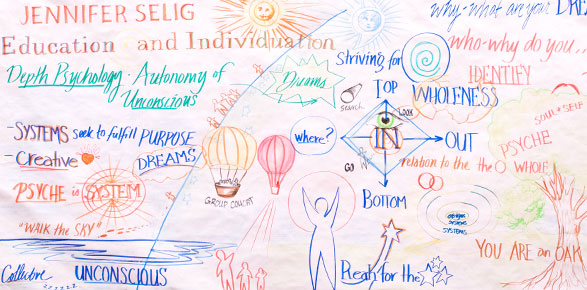 JENNIFER SELIG
Education and Individuation
Depth Psychology · Autonomy of
Unconscious
- SYSTEMS seek to fulfill PURPOSE
- Creative
DREAMS
PSYCHE is SYSTEM
"WALK the SKY"
Collective UNCONSCIOUS
zzzzzz
Dreams
GROUP
where?
why - what are your
who - why do you..
IDENTIFY
Striving for
WHOLENESS
TOP
SEARCH
LOOK
IN
OUT
GO
BOTTOM
relation to the the WHOLE
SOUL * SELF
PSYCHE
SYSTEMS
SYSTEMS
YOU ARE an OAK
Reach for the